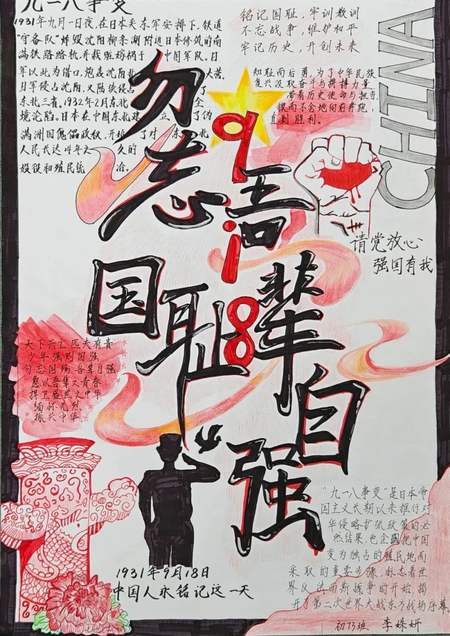 九一八事变
1931年九月一日夜,在日本关东军安排下,铁道
"守备队"炸毁沈阳柳条湖附近日本修筑的南
满铁路路轨,并栽赃嫁祸于中国军队。日
军以此为借口,炮轰沈阳北大营
日军侵占沈阳,又陆续侵占
东北三省。1932年2月,东北全
境沦陷。日本在中国东北建立了伪
满洲国傀儡政权,开始了对东北
人民长达14年之久的
奴役和殖民统治。
铭记国耻,牢训教训
不忘战争,维护和平
牢记历史,开创未来
知耻而后勇,为了中华民族
复兴汲取奋斗与拼搏力量
直到胜利。
CHINA
请党放心
强国有我
勿忘国耻
吾辈自强
9
i
8
天下兴亡匹夫有责
少年强则国强
勿忘国殇吾辈自强
愿以吾辈之青春
捍卫盛世之中华
缅怀先烈
振兴中华
1931年9月18日
中国人永铭记这一天
"九一八事变"是日本帝
国主义长期以来推行对
华侵略扩张政策的必
然结果,也企图把中国
变为独占的殖民地而
采取的重要步骤,标志着世
界反法西斯战争的开始,揭
开了第二次世界大战东方战场的序幕
李姝妍